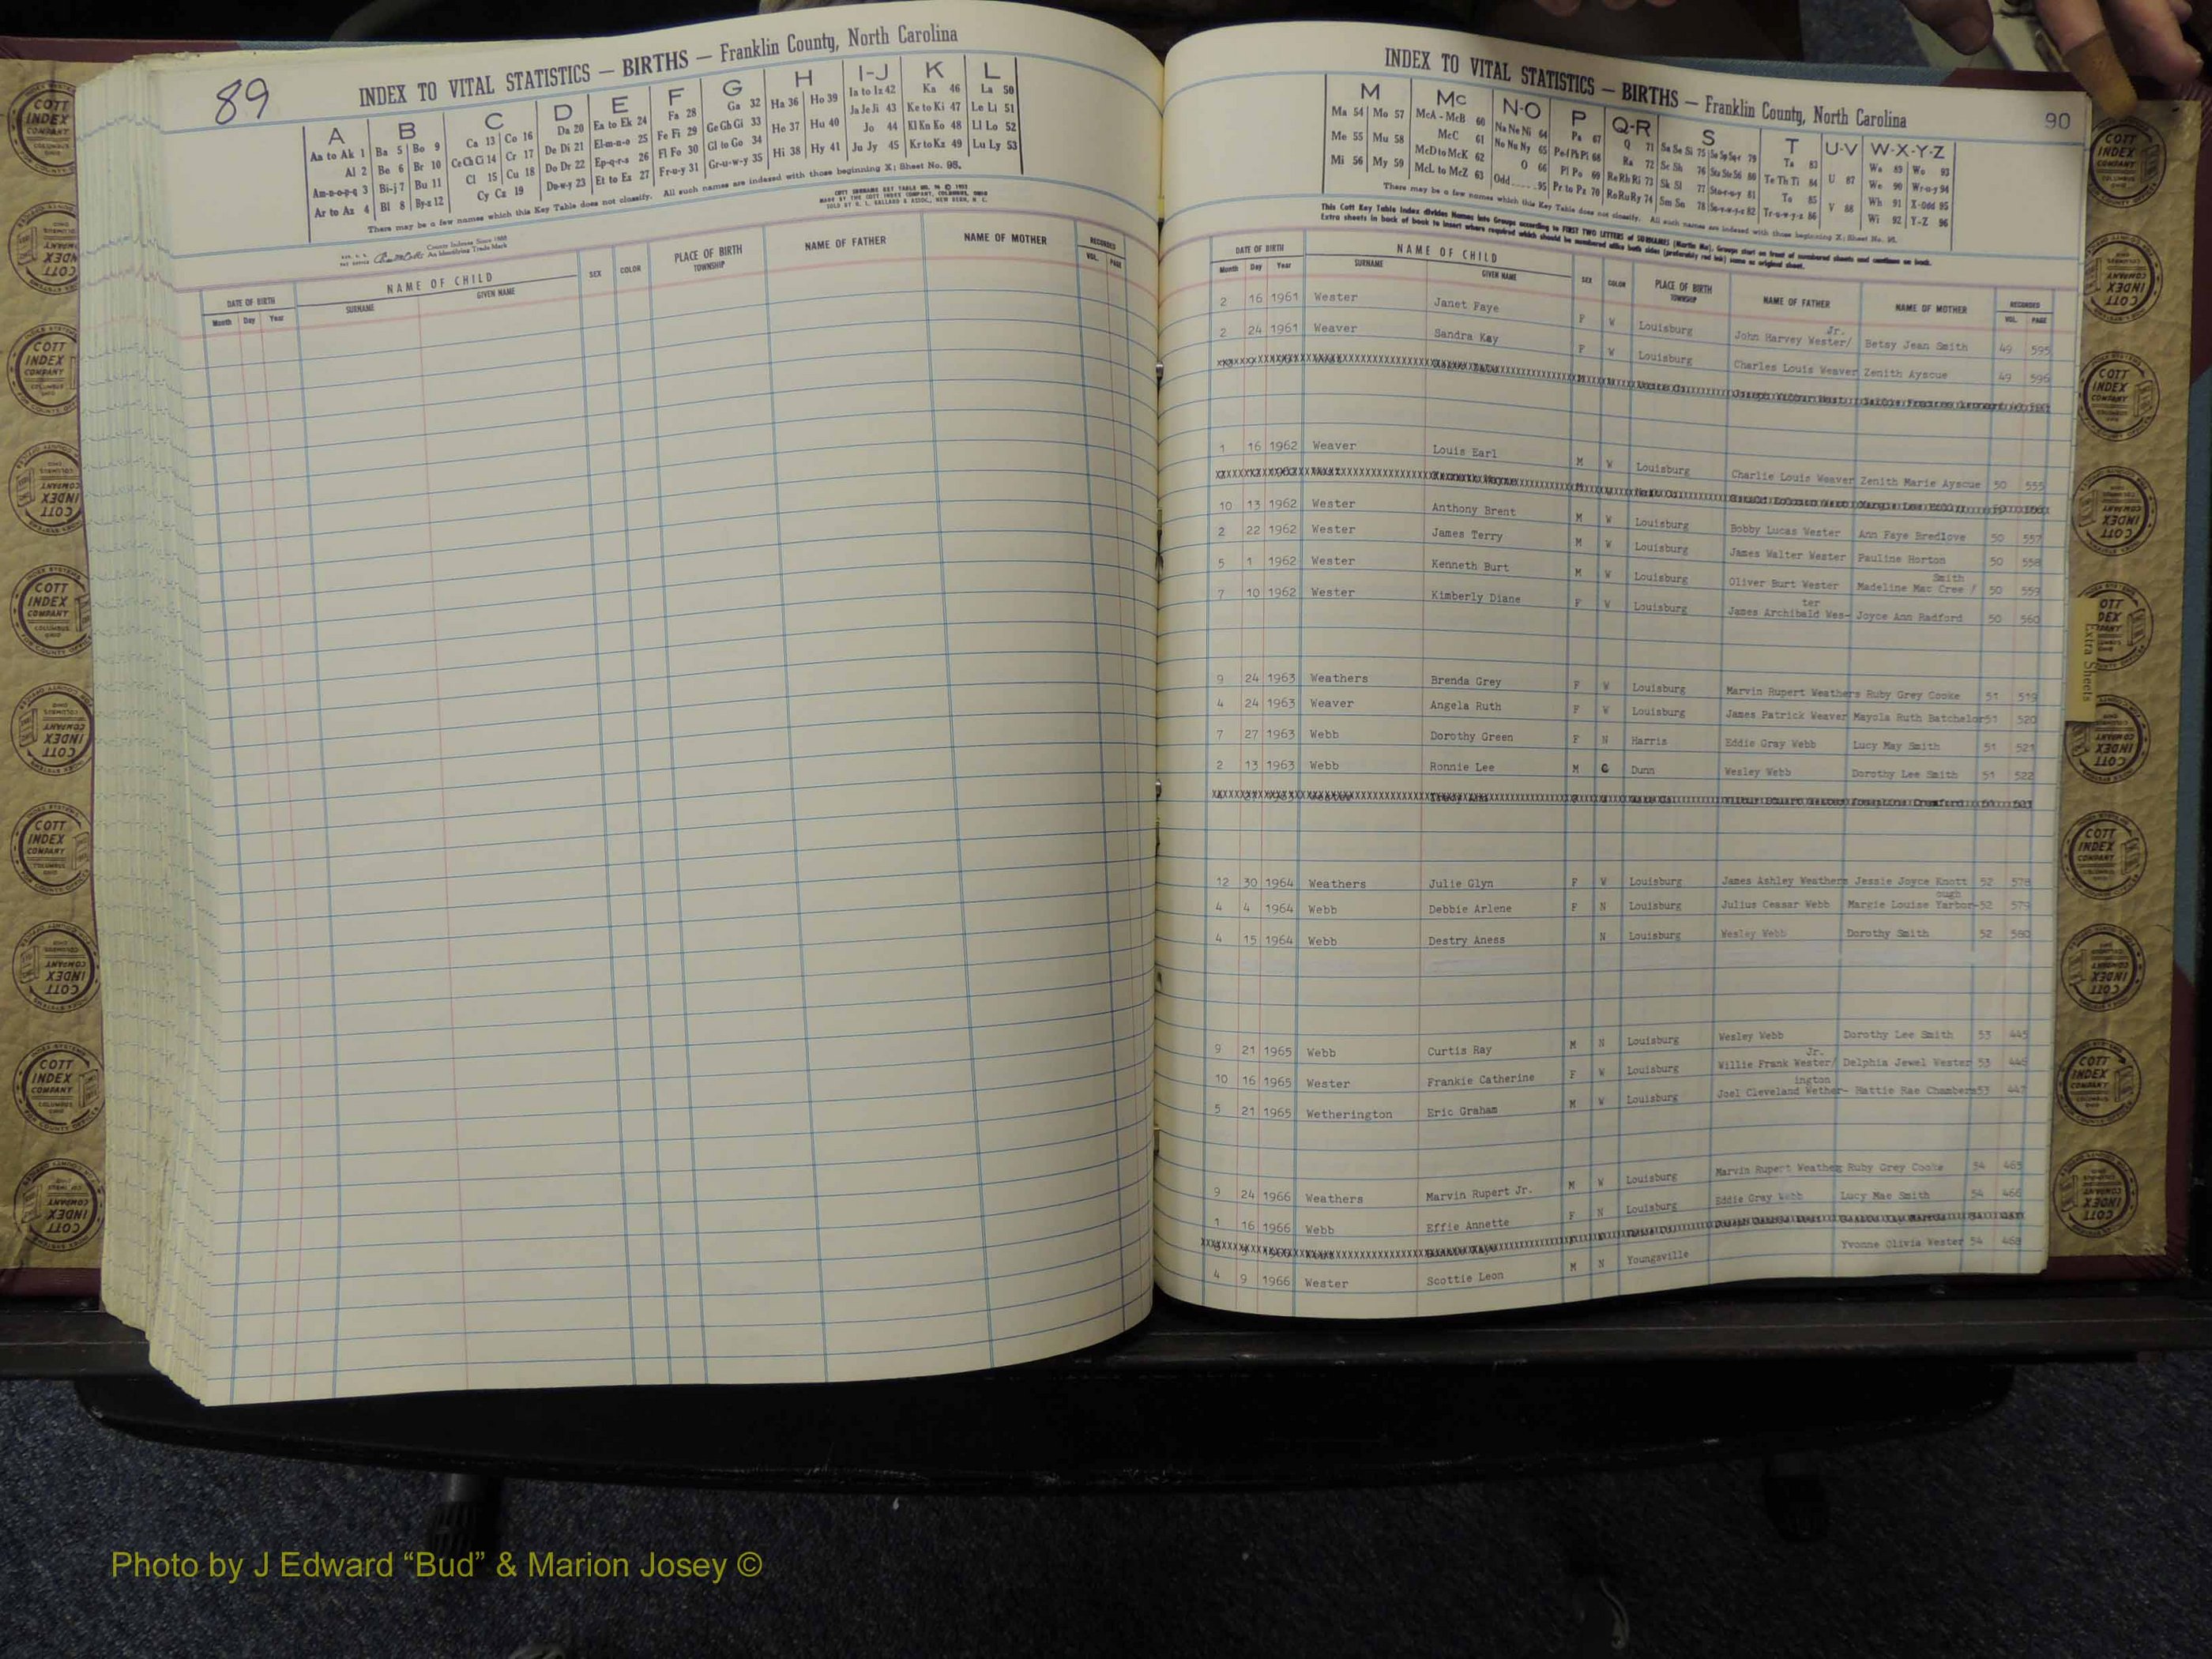 89
INDEX TO VITAL STATISTICS — BIRTHS — Franklin County, North Carolina
A B C D E F G H I-J K L
Aa to Ak 1 Ba 5 Bo 9 Ca 13 Co 16 Da 20 Ea to Ek 24 Fa 28 Ga 32 Ha 36 Ho 39 Ia to Iz 42 Ka 46 La 50
Al 2 Be 6 Br 10 Ce Ch Ci 14 Cr 17 De Di 21 El-m-n-o 25 Fe Fi 29 Ge Gh Gi 33 He 37 Hu 40 Ja Je Ji 43 Ke to Ki 47 Le Li 51
Am-n-o-p-q 3 Bi-j 7 Bu 11 Cl 15 Cu 18 Do Dr 22 Ep-q-r-s 26 Fl Fo 30 Gl to Go 34 Hi 38 Hy 41 Jo 44 Kl Kn Ko 48 Ll Lo 52
Ar to Az 4 Bl 8 By-z 12 Cy Cz 19 Du-w-y 23 Et to Ez 27 Fr-u-y 31 Gr-u-w-y 35 Ju Jy 45 Kr to Kz 49 Lu Ly 53
There may be a few names which this Key Table does not classify. All such names are indexed with those beginning X; Sheet No. 95.
County Indexes Since 1888
An Identifying Trade Mark
DATE OF BIRTH NAME OF CHILD SEX COLOR PLACE OF BIRTH NAME OF FATHER NAME OF MOTHER RECORDED
Month Day Year SURNAME GIVEN NAME TOWNSHIP VOL. PAGE
INDEX TO VITAL STATISTICS — BIRTHS — Franklin County, North Carolina
90
M Mc N-O P Q-R S T U-V W-X-Y-Z
Ma 54 Mo 57 McA - McB 60 Na Ne Ni 64 Pa 67 Q 71 Sa Se Si 75 Ta 83 Wa 89 Wo 93
Me 55 Mu 58 McC 61 No Nu Ny 65 Pe-f Ph Pi 68 Ra 72 Sc Sh 76 Te Th Ti 84 U 87 We 90 Wr-u-y 94
Mi 56 My 59 McD to McK 62 O 66 Pl Po 69 Re Rh Ri 73 Sk Sl 77 To 85 V 88 Wh 91 X-Odd 95
McL to McZ 63 Odd 95 Pr to Pz 70 Ro Ru Ry 74 Sm Sn 78 Tr-u-w-y-z 86 Wi 92 Y-Z 96
There may be a few names which this Key Table does not classify. All such names are indexed with those beginning X; Sheet No. 95.
This Cott Key Table Index divides Names into Groups according to FIRST TWO LETTERS of SURNAMES (Martin Ma). Groups start on front of numbered sheets and continue on back.
Extra sheets in back of book to insert where required which should be numbered alike both sides (preferably red ink) same as original sheet.
DATE OF BIRTH NAME OF CHILD SEX COLOR PLACE OF BIRTH NAME OF FATHER NAME OF MOTHER RECORDED
Month Day Year SURNAME GIVEN NAME TOWNSHIP VOL. PAGE
2 16 1961 Wester Janet Faye F W Louisburg John Harvey Wester/ Jr. Betsy Jean Smith 49 595
2 24 1961 Weaver Sandra Kay F W Louisburg Charles Louis Weaver Zenith Ayscue 49 596
1 16 1962 Weaver Louis Earl M W Louisburg Charlie Louis Weaver Zenith Marie Ayscue 50 555
10 13 1962 Wester Anthony Brent M W Louisburg Bobby Lucas Wester Ann Faye Bredlove 50 557
2 22 1962 Wester James Terry M W Louisburg James Walter Wester Pauline Horton 50 558
5 1 1962 Wester Kenneth Burt M W Louisburg Oliver Burt Wester Madeline Mac Cree / Smith 50 559
7 10 1962 Wester Kimberly Diane F W Louisburg James Archibald Wes-ter Joyce Ann Radford 50 560
9 24 1963 Weathers Brenda Grey F W Louisburg Marvin Rupert Weathers Ruby Grey Cooke 51 519
4 24 1963 Weaver Angela Ruth F W Louisburg James Patrick Weaver Mayola Ruth Batchelor 51 520
7 27 1963 Webb Dorothy Green F N Harris Eddie Gray Webb Lucy May Smith 51 521
2 13 1963 Webb Ronnie Lee M C Dunn Wesley Webb Dorothy Lee Smith 51 522
12 30 1964 Weathers Julie Glyn F W Louisburg James Ashley Weathers Jessie Joyce Knott 52 578
4 4 1964 Webb Debbie Arlene F N Louisburg Julius Ceasar Webb Margie Louise Yarbor-ough 52 579
4 15 1964 Webb Destry Aness N Louisburg Wesley Webb Dorothy Smith 52 580
9 21 1965 Webb Curtis Ray M N Louisburg Wesley Webb Dorothy Lee Smith 53 445
10 16 1965 Wester Frankie Catherine F W Louisburg Willie Frank Wester/ Jr. Delphia Jewel Wester 53 446
5 21 1965 Wetherington Eric Graham M W Louisburg Joel Cleveland Wether-ington Mattie Rae Chambers 53 447
9 24 1966 Weathers Marvin Rupert Jr. M W Louisburg Marvin Rupert Weathers Ruby Grey Cooke 54 465
1 16 1966 Webb Effie Annette F N Louisburg Eddie Gray Webb Lucy Mae Smith 54 466
4 9 1966 Wester Scottie Leon M N Youngsville Yvonne Olivia Wester 54 468
Extra Sheets
COTT INDEX COMPANY COLUMBUS OHIO
Photo by J Edward “Bud” & Marion Josey ©